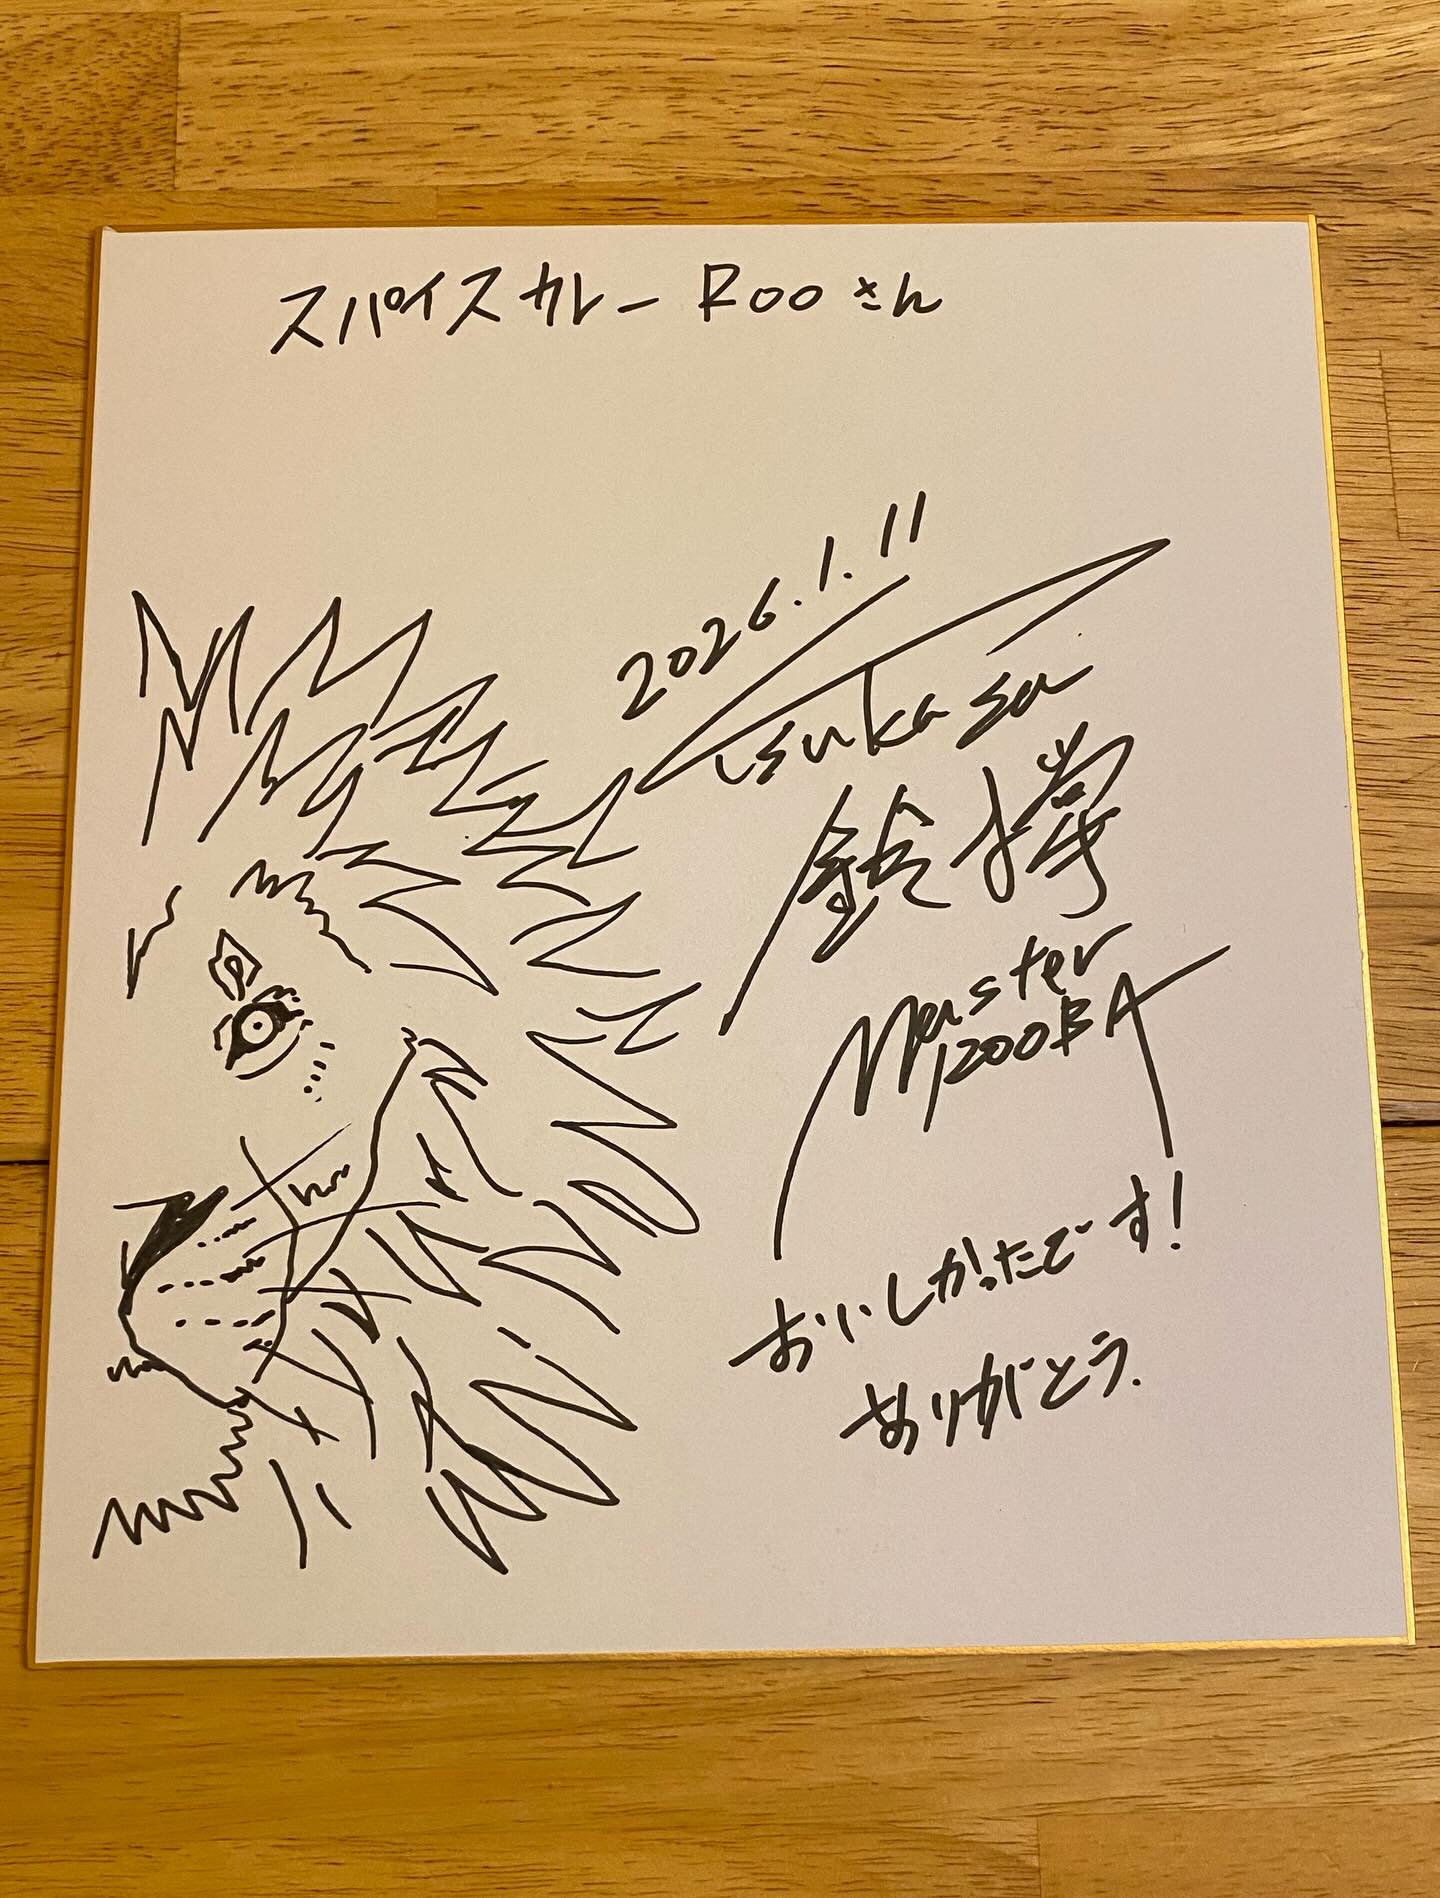 スパイスカレー Rooさん
2026.1.11
Tsukasa
Monster
1200BA
おいしかったです!
ありがとう.